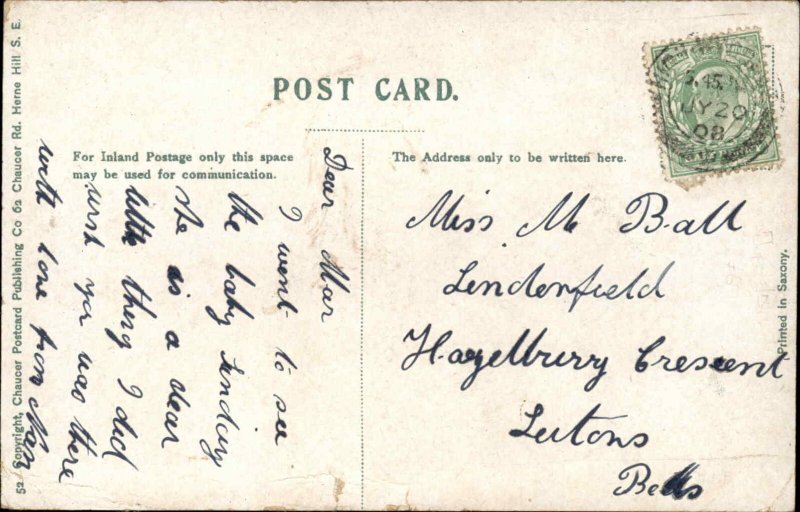 POST CARD.
For Inland Postage only this space
may be used for communication.
The Address only to be written here.
Dear Mar
I went to see
the baby Sunday
she is a dear
little thing I did
wish you was there
with love from Nan
Miss M Ball
Linderfield
Hazelbury Crescent
Lutons
Beds
5.45
JY 20
08
Printed in Saxony.
52 Copyright, Chaucer Postcard Publishing Co 62 Chaucer Rd. Herne Hill S. E.